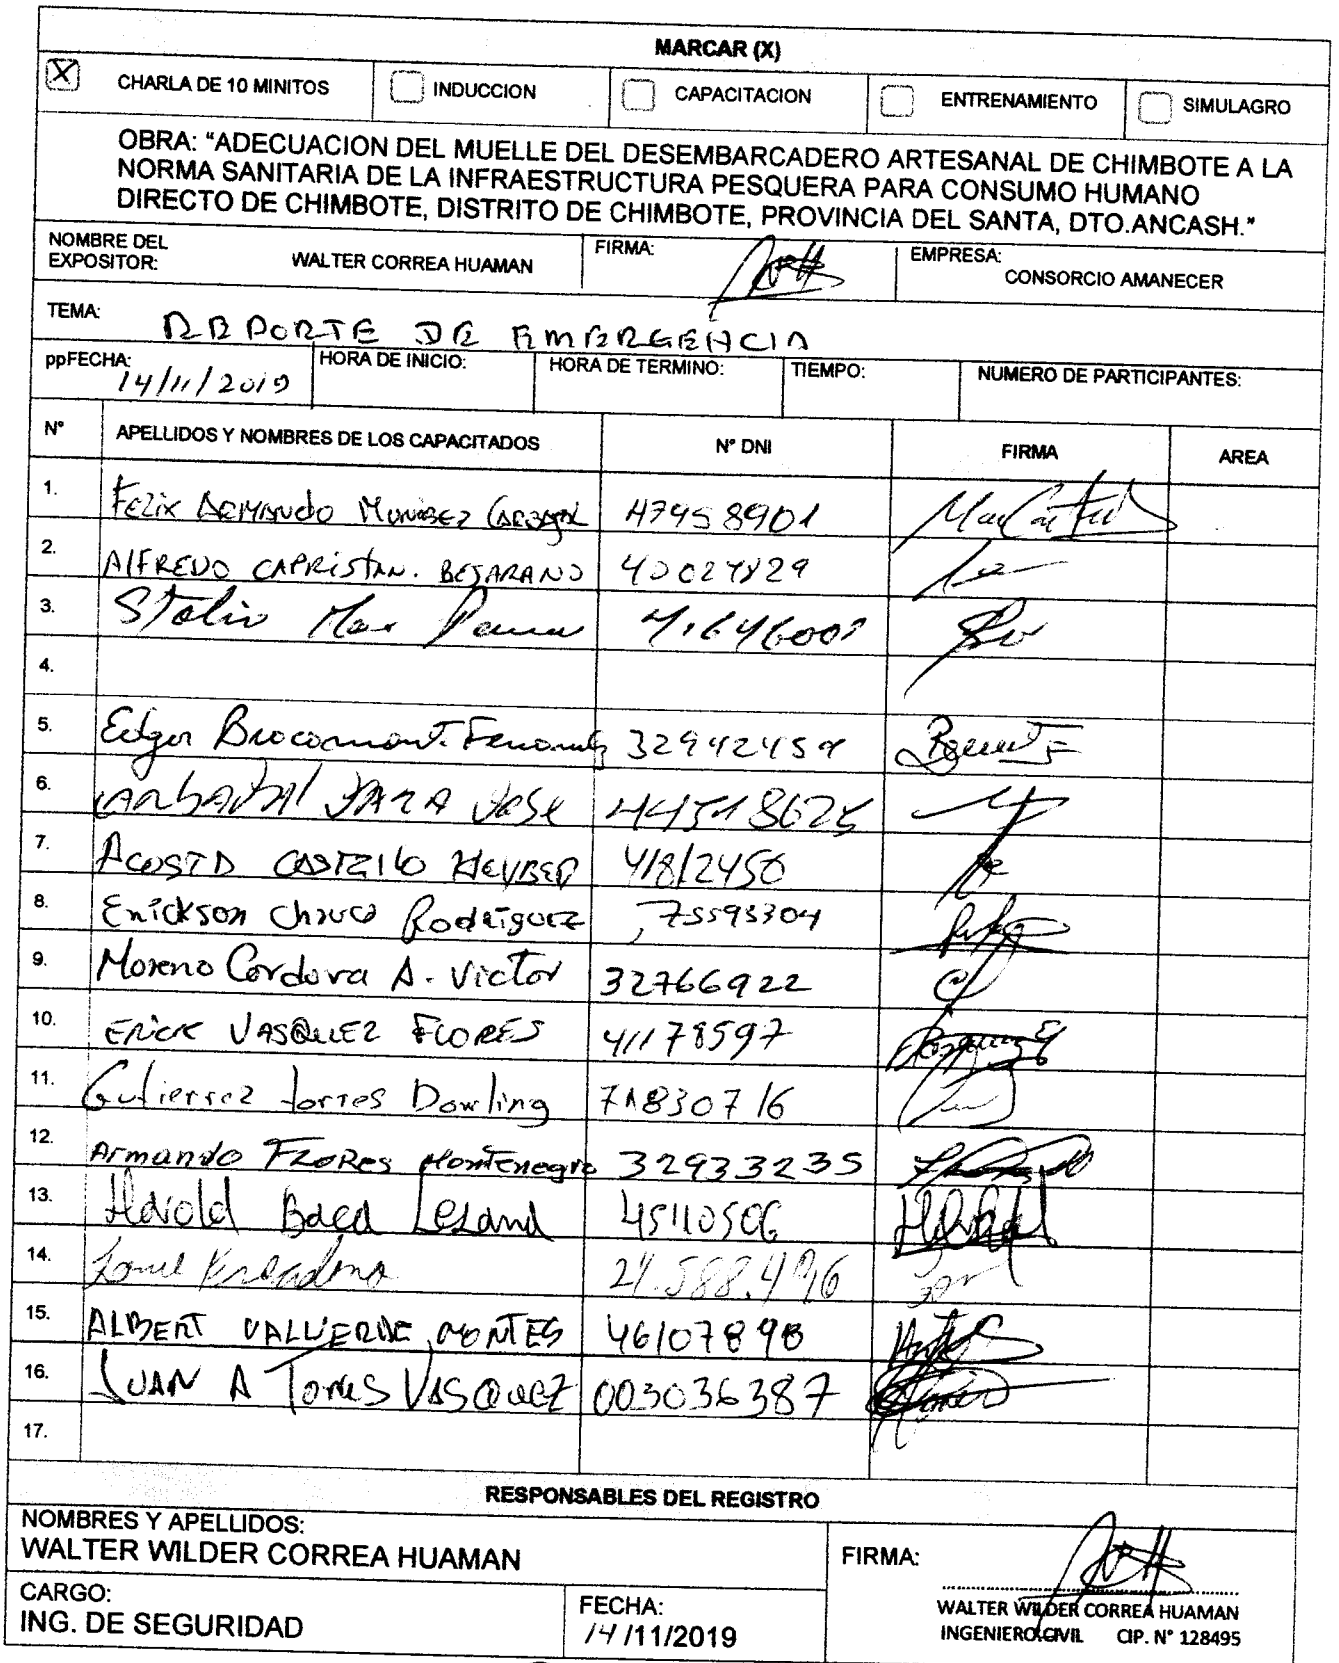 MARCAR (X)
X CHARLA DE 10 MINITOS INDUCCION CAPACITACION ENTRENAMIENTO SIMULAGRO
OBRA: "ADECUACION DEL MUELLE DEL DESEMBARCADERO ARTESANAL DE CHIMBOTE A LA
NORMA SANITARIA DE LA INFRAESTRUCTURA PESQUERA PARA CONSUMO HUMANO
DIRECTO DE CHIMBOTE, DISTRITO DE CHIMBOTE, PROVINCIA DEL SANTA, DTO.ANCASH."
NOMBRE DEL
EXPOSITOR: WALTER CORREA HUAMAN FIRMA: EMPRESA:
CONSORCIO AMANECER
TEMA: REPORTE DE EMERGENCIA
ppFECHA: HORA DE INICIO: HORA DE TERMINO: TIEMPO: NUMERO DE PARTICIPANTES:
14/11/2019
N° APELLIDOS Y NOMBRES DE LOS CAPACITADOS N° DNI FIRMA AREA
1. Felix Armando 47958901
2. Alfredo CAPRiSTAN. BEJARANO 40024829
3. Stalin
4.
5. Edgar 32942459
6. CARBAJAL JARA JOSE 44518625
7. ACOSTA CASTILLO HEYBER 41812450
8. Erickson Chauca Rodriguez 75593304
9. Moreno Cordova A. Victor 32766922
10. ERICK VASQUEZ FLORES 41178597
11. Gutierrez torres Dowling 71830716
12. Armando FLORES Montenegro 32933235
13. Harold Baca Lezama 45110506
14. 21.588.496
15. ALBERT VALVERDE MONTES 46107898
16. JUAN A Torres VASQUEZ 003036387
17.
RESPONSABLES DEL REGISTRO
NOMBRES Y APELLIDOS:
WALTER WILDER CORREA HUAMAN
FIRMA:
CARGO:
ING. DE SEGURIDAD
FECHA:
14/11/2019
WALTER WILDER CORREA HUAMAN
INGENIERO CIVIL CIP. N° 128495